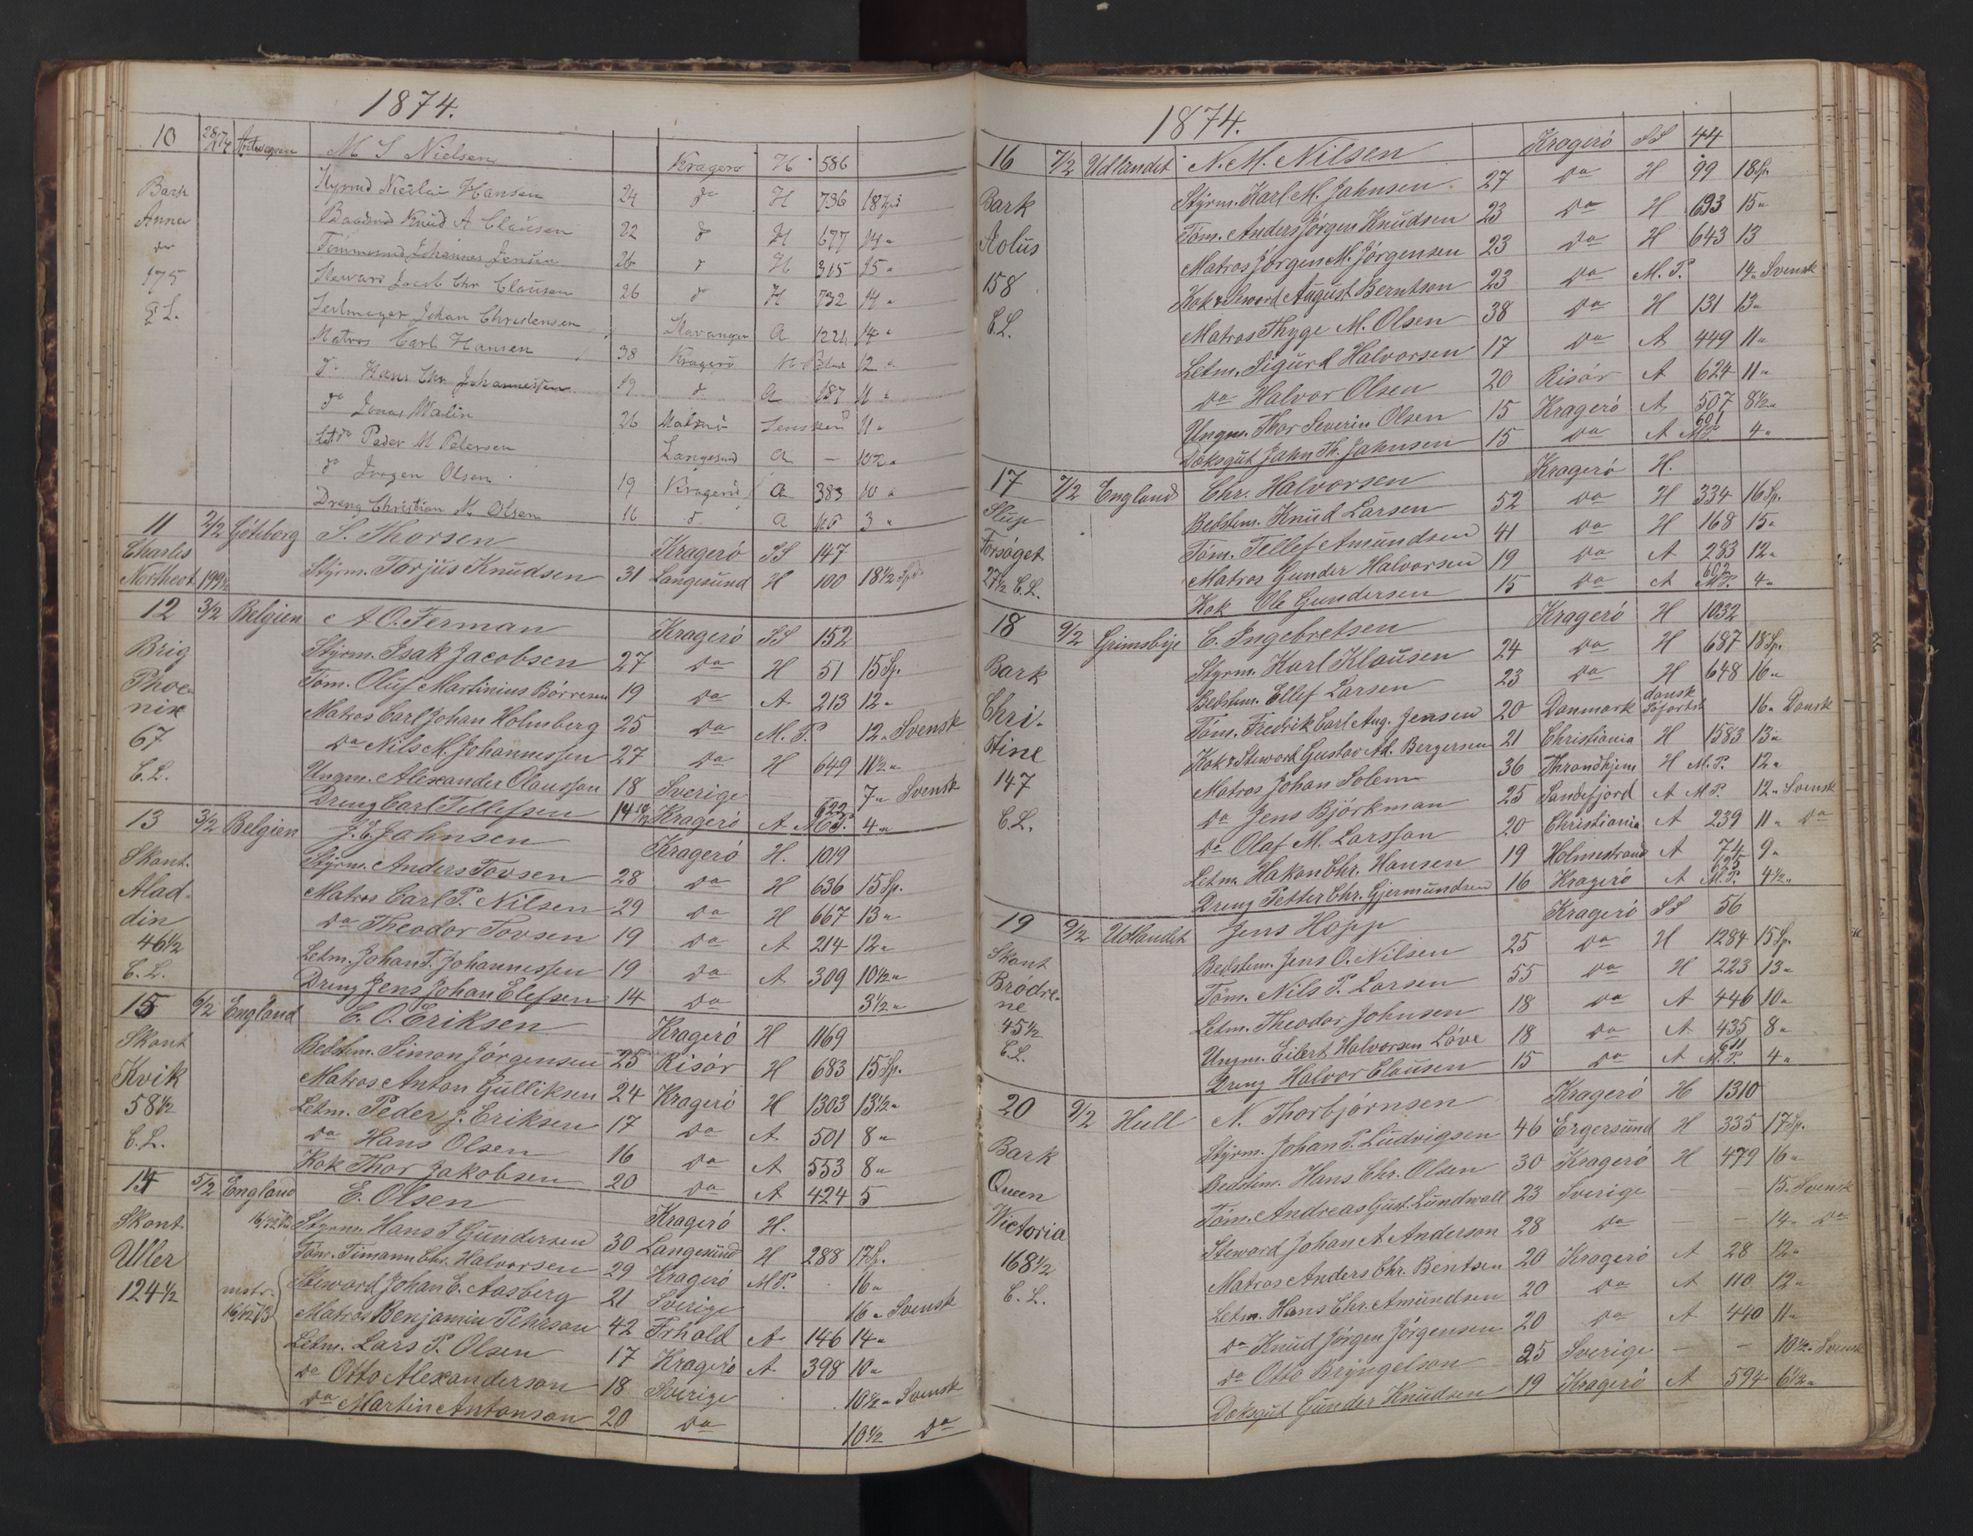 1874.
10 28/1 74 Antwerpen M S Nielsen Kragerø H 586
Styrmd Nicolai Hansen 24 do H 736 18 Spd
Bark Baadsmd Knud A Clausen 22 do H 677 14 "
Anna Tømmermd Johannes Jensen 26 do H 315 15 "
do Steward Jacob Chr Clausen 26 do H 732 14 "
175 Seilmager Johan Christensen Stavanger A 1221 14 "
C. L. Matros Carl Hansen 38 Kragerø 12 "
do Hans Chr Johannessen 19 do A 187 11 "
do Jonas Malin 26 11 "
Letm Peder M Petersen Langesund A — 10½ "
do Jørgen Olsen 19 Kragerø A 383 10 "
Dreng Christian N. Olsen 16 do A 3 "
11 2/2 Göteborg S. Thorsen Kragerø SS 147
Charles Northcot 199½ Styrm. Torjus Knudsen 31 Langesund H 100 18½ Spd
12 3/2 Belgien A. O. Ferman Kragerø SS 152
Brig Styrm. Isak Jacobsen 27 do H 51 15 Sp.
Phoe- Töm. Oluf Martinius Börresen 19 do A 213 12 "
nix Matros Carl Johan Holmberg 25 do M. P. 12 " Svensk
67 do Nils M. Johannessen 27 do H 649 11½ "
C. L. Ungm. Alexander Olaussan 18 Sverige 7 " Svensk
Dreng Carl Tellefsen 14 10/12 Kragerø A 622 M.P. 4 "
13 3/2 Belgien J. E. Jahnsen Kragerø H. 1019
Skont. Styrm. Anders Tovsen 28 do H 636 15 Sp.
Alad- Matros Carl P. Nilsen 29 do H 667 13 "
din do Theodor Tovsen 19 do A 214 12 "
46½ Letm. Johan T. Johannessen 19 do A 309 10½ "
C. L. Dreng Jens Johan Elefsen 14 do 3½ "
15 6/2 England E. O. Eriksen Kragerø H 1169
Skont Bedstm. Simon Jörgensen 25 Risør H 683 15 Sp.
Kvik Matros Anton Gulliksen 24 Kragerø H 1303 13½ "
58½ Letm. Peder J. Eriksen 17 do A 501 8 "
C. L. do Hans Olsen 16 do A 553 8 "
Kok Thor Jakobsen 20 do A 424 5
14 5/2 England E. Olsen Kragerø H.
Skont. Styrm. Hans P Gundersen 30 Langesund H 288 17 Sp.
Uller Töm. Timann Chr. Halvorsen 29 Kragerø M P. 16 "
124½ mstr. 16/12 73 Steward Johan E. Aasberg 21 Sverige 16 " Svensk
Matros Benjamin Pehrson 42 Frhald A 146 14 "
Letm. Lars P. Olsen 17 Kragerø A 398 10 "
do Otto Alexanderson 18 Sverige 10½ " Svensk
do Martin Antonson 20 do 10½ do
1874.
16 7/2 Udlandet N. M. Nilsen Kragerø SS 44
Styrm. Karl M. Jahnsen 27 do H 99 18 Sp.
Bark Töm. Anders Jörgen Knudsen 23 do H 693 15 "
Aolus Matros Jörgen M. Jörgensen 23 do H 643 13
158 Kok & Steward August Berntson 23 do M. P. 14 " Svensk
C. L. Matros Thyge M. Olsen 38 do H 131 13 "
Letm. Sigurd Halvorsen 17 do A 449 11 "
do Halvor Olsen 20 Risør A 624 11 "
Ungm. Thor Severin Olsen 15 Kragerø A 507 8½ "
Däksgut Jahn Th. Jahnsen 15 do A 601 M.P. 4 "
17 7/2 England Chr. Halvorsen Kragerø H.
Slup Bedstm. Knud Larsen 52 do H 334 16 Sp.
Forsøget Töm. Tellef Amundsen 41 do H 168 15 "
27½ C. L. Matros Gunder Halvorsen 19 do A 283 12 "
Kok Ole Gundersen 15 do A 602 M.P. 4 "
18 9/2 Grimsbye E. Ingebretsen Kragerø H 1032
Bark Styrm. Karl Klausen 24 do H 687 18 Sp.
Bedstm. Ellef Larsen 23 do H 648 16 "
Chri- Töm. Fredrik Carl Aug. Jensen 20 Danmark dansk Söfartsb 16 " Dansk
stine Kok & Steward Gustav Ad. Bergersen 21 Christiania H 1583 13 "
147 Matros Johan Solem 36 Throndhjem H M. P. 12 "
C. L. do Jens Björkman 25 Sandefjord A M P. 12 " Svensk
do Olaf M. Larsson 20 Christiania A 239 11 " do
Letm. Hakon Chr. Hansen 19 Holmestrand A 74 9 "
Dreng Petter Chr. Gjermundsen 16 Kragerø A M.P. 4½ "
19 9/2 Udlandet Jens Hopp Kragerø SS 56
Skont Bedstm. Jens O. Nilsen 25 do H 1284 15 Sp.
Brödre- Töm. Nils P. Larsen 55 do H 223 13 "
ne Letm. Theodor Johnsen 18 do A 446 10 "
45½ Ungm. Eilert Halvorsen Löve 18 do A 435 8 "
C. L. Dreng Halvor Clausen 15 do A 611 M. P. 4 "
20 9/2 Hull N. Thorbjørnsen Kragerø H 1310
Bark Styrm. Johan P. Ludvigsen 46 Egersund H 335 17 Sp.
Bedstm. Hans Chr. Olsen 30 Kragerø H 479 16 "
Queen Töm. Andreas Gust. Lundwall 23 Sverige — — 15 " Svensk
Victoria Steward Johan A Anderson 28 do — — 14 " do
168½ Matros Anders Chr. Bentsen 20 Kragerø A 28 12 "
C. L. Letm. Hans Chr. Amundsen 20 do A 110 12 "
do Knud Jörgen Jörgensen 20 do A 440 11 "
do Otto Bryngelson 25 Sverige — — 10½ " Svensk
Däksgut Gunder Knudsen 19 Kragerø A 594 6½ "